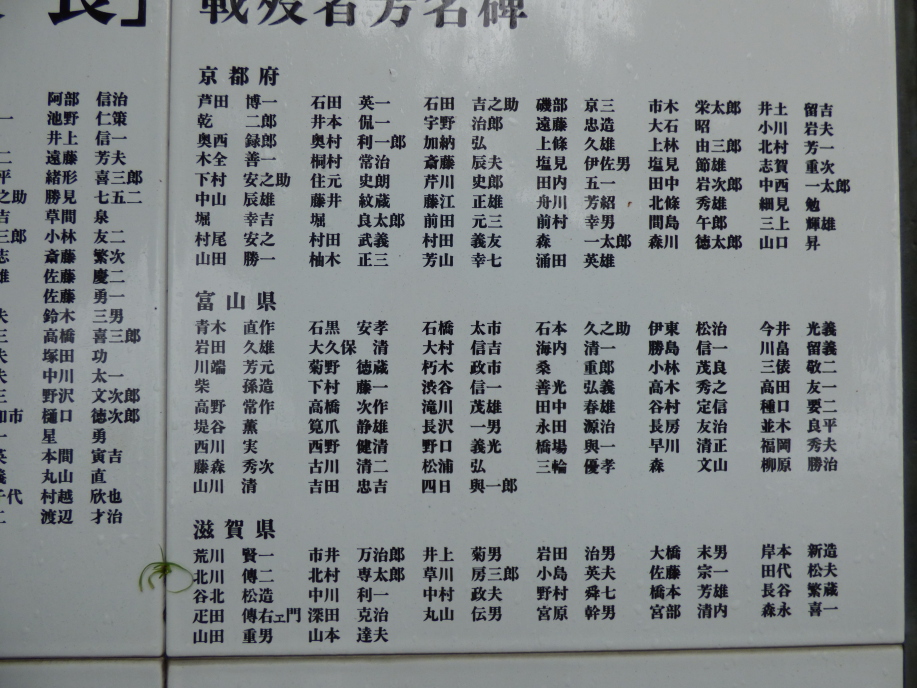 良」 戦歿者芳名碑
阿部 信治
池野 仁策
井上 信一
遠藤 芳夫
緒形 喜三郎
勝見 七五二
草間 泉
小林 友二
斎藤 繁次
佐藤 慶二
佐藤 勇一
鈴木 三男
高橋 喜三郎
塚田 功
中川 太一
野沢 文次郎
樋口 徳次郎
星 勇
本間 寅吉
丸山 直
村越 欣也
渡辺 才治
京都府
芦田 博一 石田 英一 石田 吉之助 磯部 京三 市木 栄太郎 井土 留吉
乾 二郎 井本 侃一 宇野 治郎 遠藤 忠造 大石 昭 小川 岩夫
奥西 録郎 奥村 利一郎 加納 弘 上條 久雄 上林 由三郎 北村 芳一
木全 善一 桐村 常治 斎藤 辰夫 塩見 伊佐男 塩見 節雄 志賀 重次
下村 安之助 住元 史朗 芹川 史郎 田内 五一 田中 岩次郎 中西 一太郎
中山 辰雄 藤井 紋蔵 藤江 正雄 舟川 芳紹 北條 秀雄 細見 勉
堀 幸吉 堀 良太郎 前田 元三 前村 幸男 間島 午郎 三上 輝雄
村尾 安之 村田 武義 村田 義友 森 一太郎 森川 徳太郎 山口 昇
山田 勝一 柚木 正三 芳山 幸七 涌田 英雄
富山県
青木 直作 石黒 安孝 石橋 太市 石本 久之助 伊東 松治 今井 光義
岩田 久雄 大久保 清 大村 信吉 海内 清一 勝島 信一 川畠 留義
川端 芳元 菊野 徳蔵 朽木 政市 桑 重郎 小林 茂良 三俵 敬二
柴 孫造 下村 藤一 渋谷 信一 善光 弘義 高木 秀之 高田 友一
高野 常作 高橋 次作 滝川 茂雄 田中 春雄 谷村 定信 種口 要二
堤谷 薫 筧爪 静雄 長沢 一男 永田 源治 長房 友治 並木 良平
西川 実 西野 健清 野口 義光 橋場 與一 早川 清正 福岡 秀夫
藤森 秀次 古川 清二 松浦 弘 三輪 優孝 森 文山 柳原 勝治
山川 清 吉田 忠吉 四日 與一郎
滋賀県
荒川 賢一 市井 万治郎 井上 菊男 岩田 治男 大橋 末男 岸本 新造
北川 傳二 北村 専太郎 草川 房三郎 小島 英夫 佐藤 宗一 田代 松夫
谷北 松造 中川 利一 中村 政夫 野村 舜七 橋本 芳雄 長谷 繁蔵
疋田 傳右ェ門 深田 克治 丸山 伝男 宮原 幹男 宮部 清内 森永 喜一
山田 重男 山本 達夫